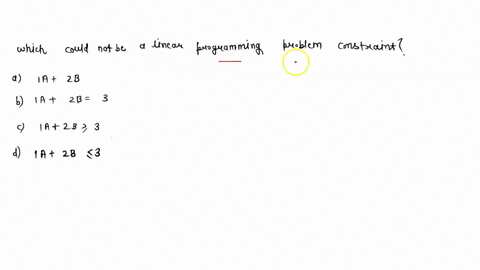 which could not be a linear programming problem constraint?
a) 1A + 2B
b) 1A + 2B = 3
c) 1A + 2B ≥ 3
d) 1A + 2B ≤ 3